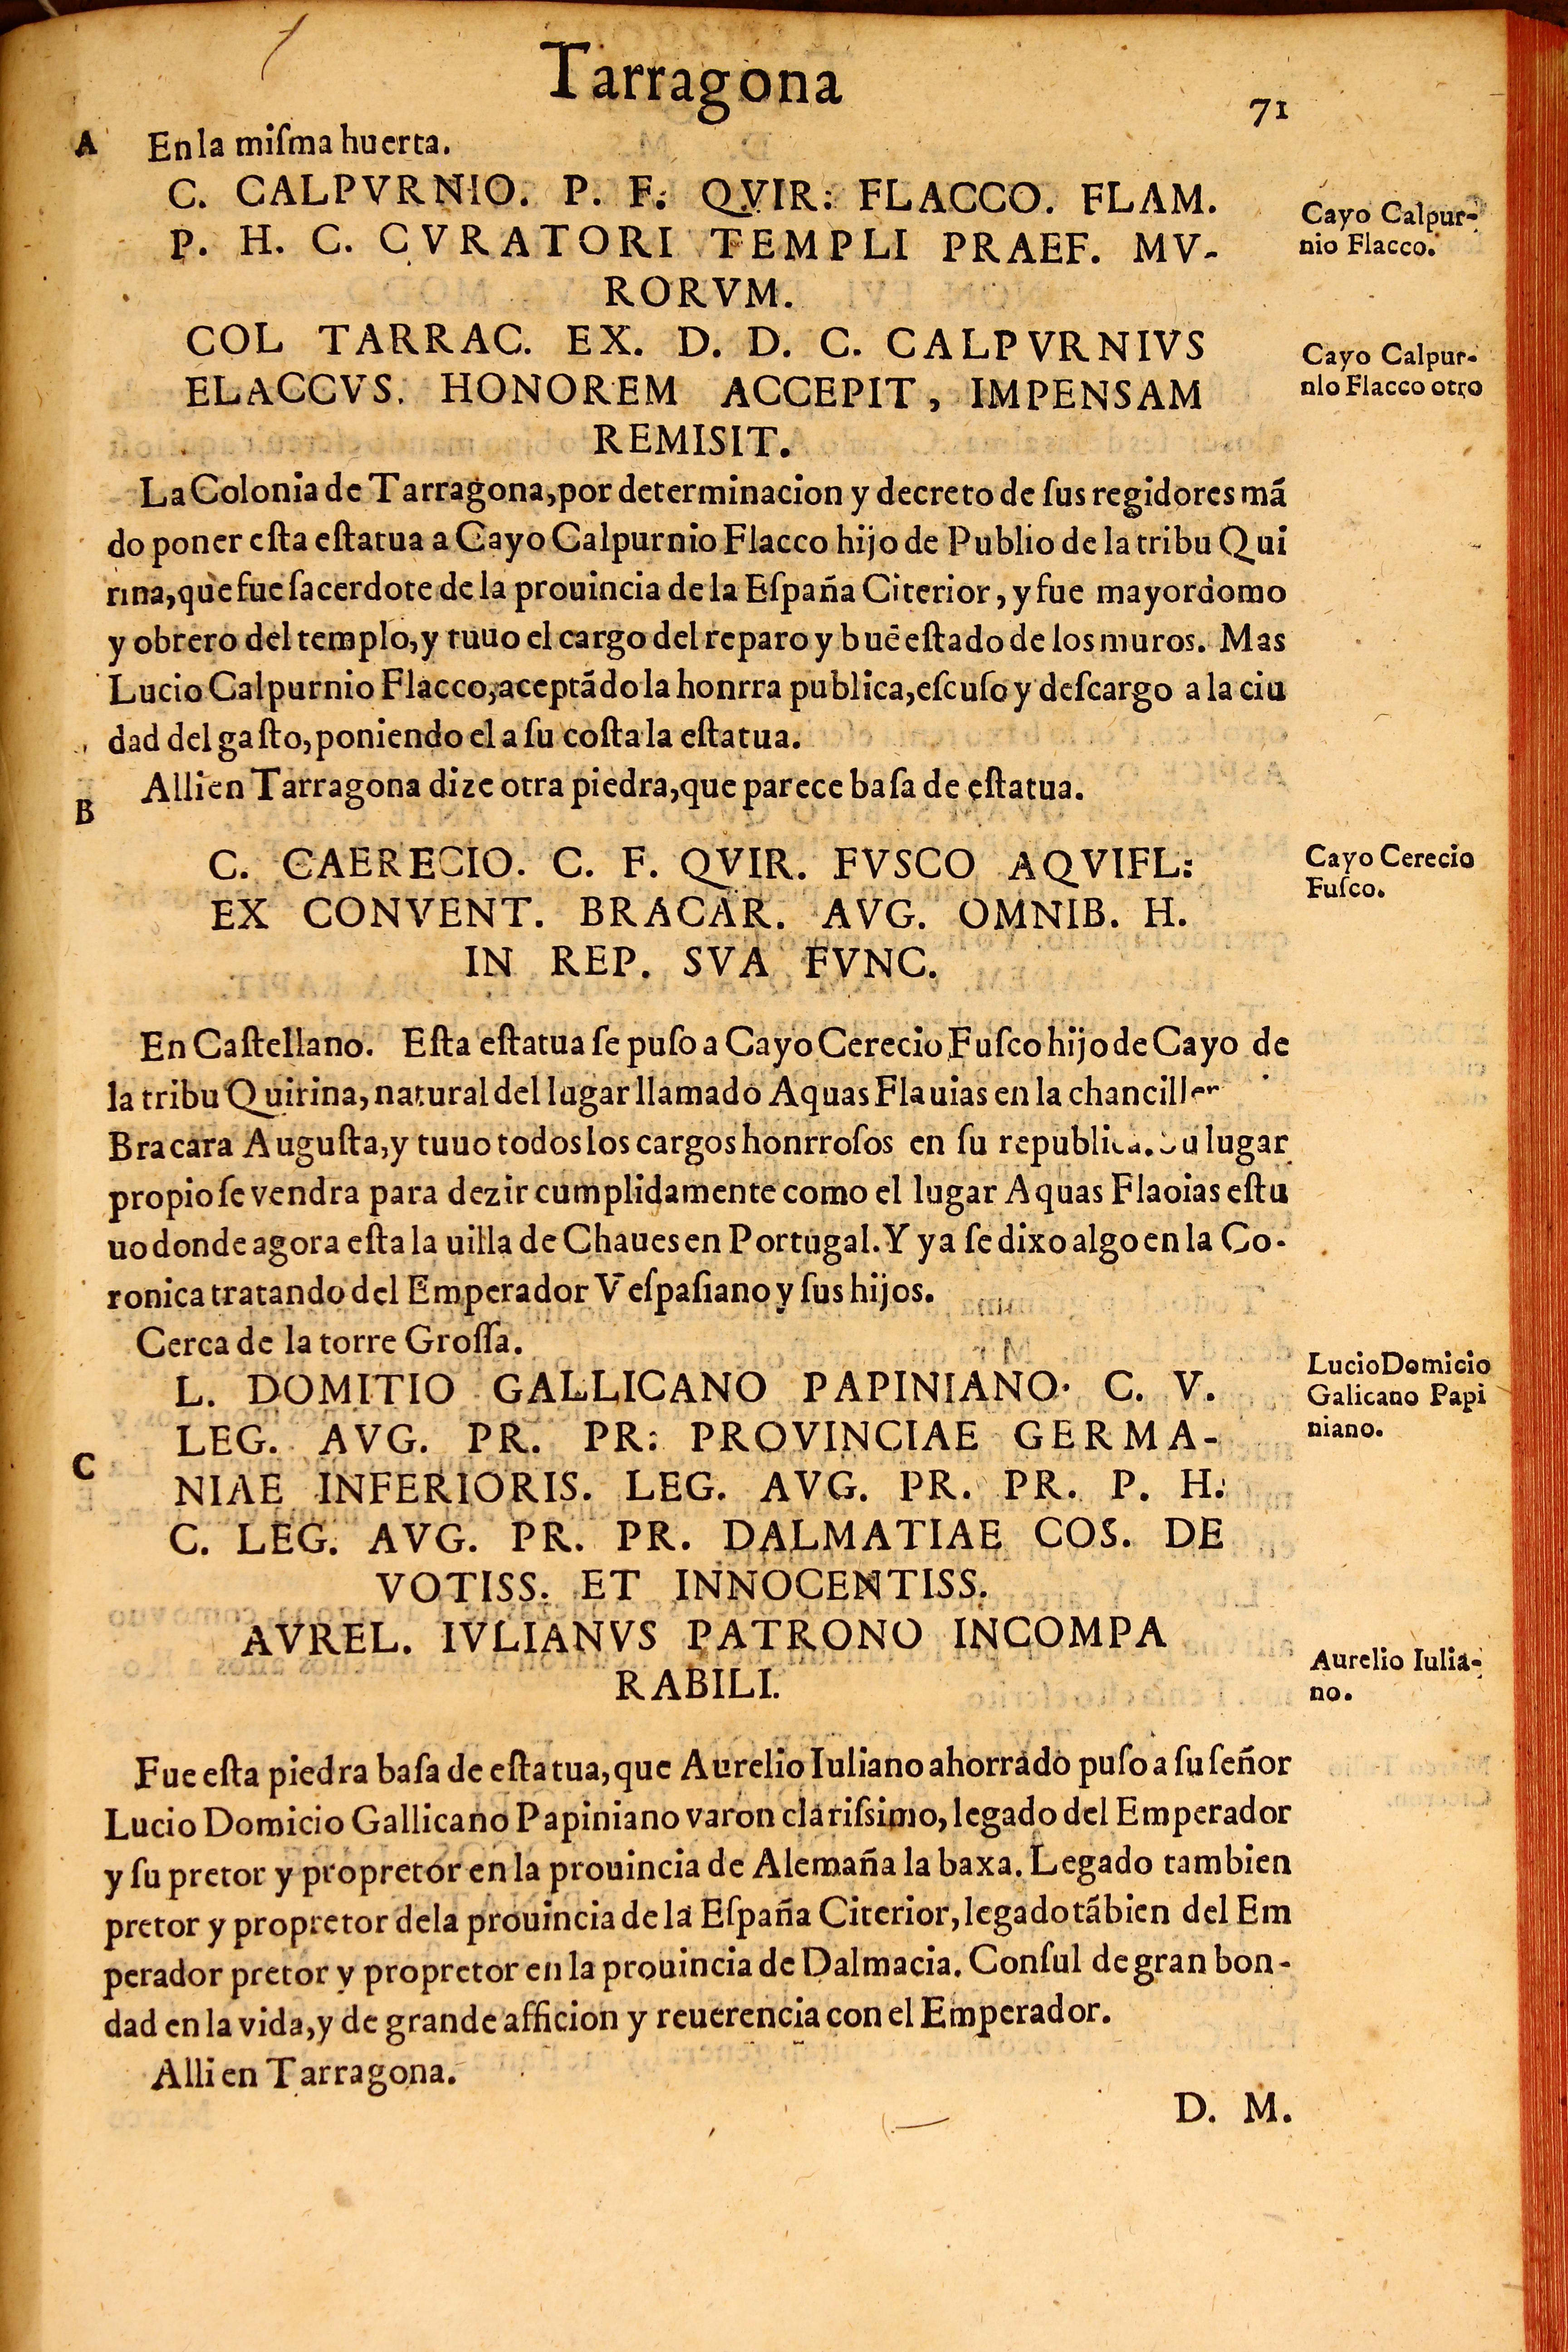 Tarragona
71
A En la miſma huerta.
C. CALPVRNIO. P. F. QVIR: FLACCO. FLAM.
P. H. C. CVRATORI TEMPLI PRAEF. MV-
RORVM.
Cayo Calpur-
nio Flacco.
COL TARRAC. EX. D. D. C. CALPVRNIVS
ELACCVS. HONOREM ACCEPIT, IMPENSAM
REMISIT.
Cayo Calpur-
nlo Flacco otro
La Colonia de Tarragona, por determinacion y decreto de ſus regidores mã
do poner eſta eſtatua a Cayo Calpurnio Flacco hijo de Publio de la tribu Qui
rina, que fue ſacerdote de la prouincia de la Eſpaña Citerior, y fue mayordomo
y obrero del templo, y tuuo el cargo del reparo y buē eſtado de los muros. Mas
Lucio Calpurnio Flacco, aceptãdo la honrra publica, eſcuſo y deſcargo a la ciu
dad del gaſto, poniendo el a ſu coſta la eſtatua.
Alli en Tarragona dize otra piedra, que parece baſa de eſtatua.
B
C. CAERECIO. C. F. QVIR. FVSCO AQVIFL:
EX CONVENT. BRACAR. AVG. OMNIB. H.
IN REP. SVA FVNC.
Cayo Cerecio
Fuſco.
En Caſtellano. Eſta eſtatua ſe puſo a Cayo Cerecio Fuſco hijo de Cayo de
la tribu Quirina, natural del lugar llamado Aquas Flauias en la chanciller
Bracara Auguſta, y tuuo todos los cargos honrroſos en ſu republica. Su lugar
propio ſe vendra para dezir cumplidamente como el lugar Aquas Flaoias eſtu
uo donde agora eſta la uilla de Chaues en Portugal. Y ya ſe dixo algo en la Co-
ronica tratando del Emperador Veſpaſiano y ſus hijos.
Cerca de la torre Groſſa.
L. DOMITIO GALLICANO PAPINIANO. C. V.
LEG. AVG. PR. PR: PROVINCIAE GERMA-
C
NIAE INFERIORIS. LEG. AVG. PR. PR. P. H.
C. LEG. AVG. PR. PR. DALMATIAE COS. DE
VOTISS. ET INNOCENTISS.
Lucio Domicio
Galicano Papi
niano.
AVREL. IVLIANVS PATRONO INCOMPA
RABILI.
Aurelio Iulia-
no.
Fue eſta piedra baſa de eſtatua, que Aurelio Iuliano ahorrado puſo a ſu ſeñor
Lucio Domicio Gallicano Papiniano varon clariſsimo, legado del Emperador
y ſu pretor y propretor en la prouincia de Alemaña la baxa. Legado tambien
pretor y propretor dela prouincia de la Eſpaña Citerior, legado tãbien del Em
perador pretor y propretor en la prouincia de Dalmacia. Conſul de gran bon-
dad en la vida, y de grande afficion y reuerencia con el Emperador.
Alli en Tarragona.
D. M.